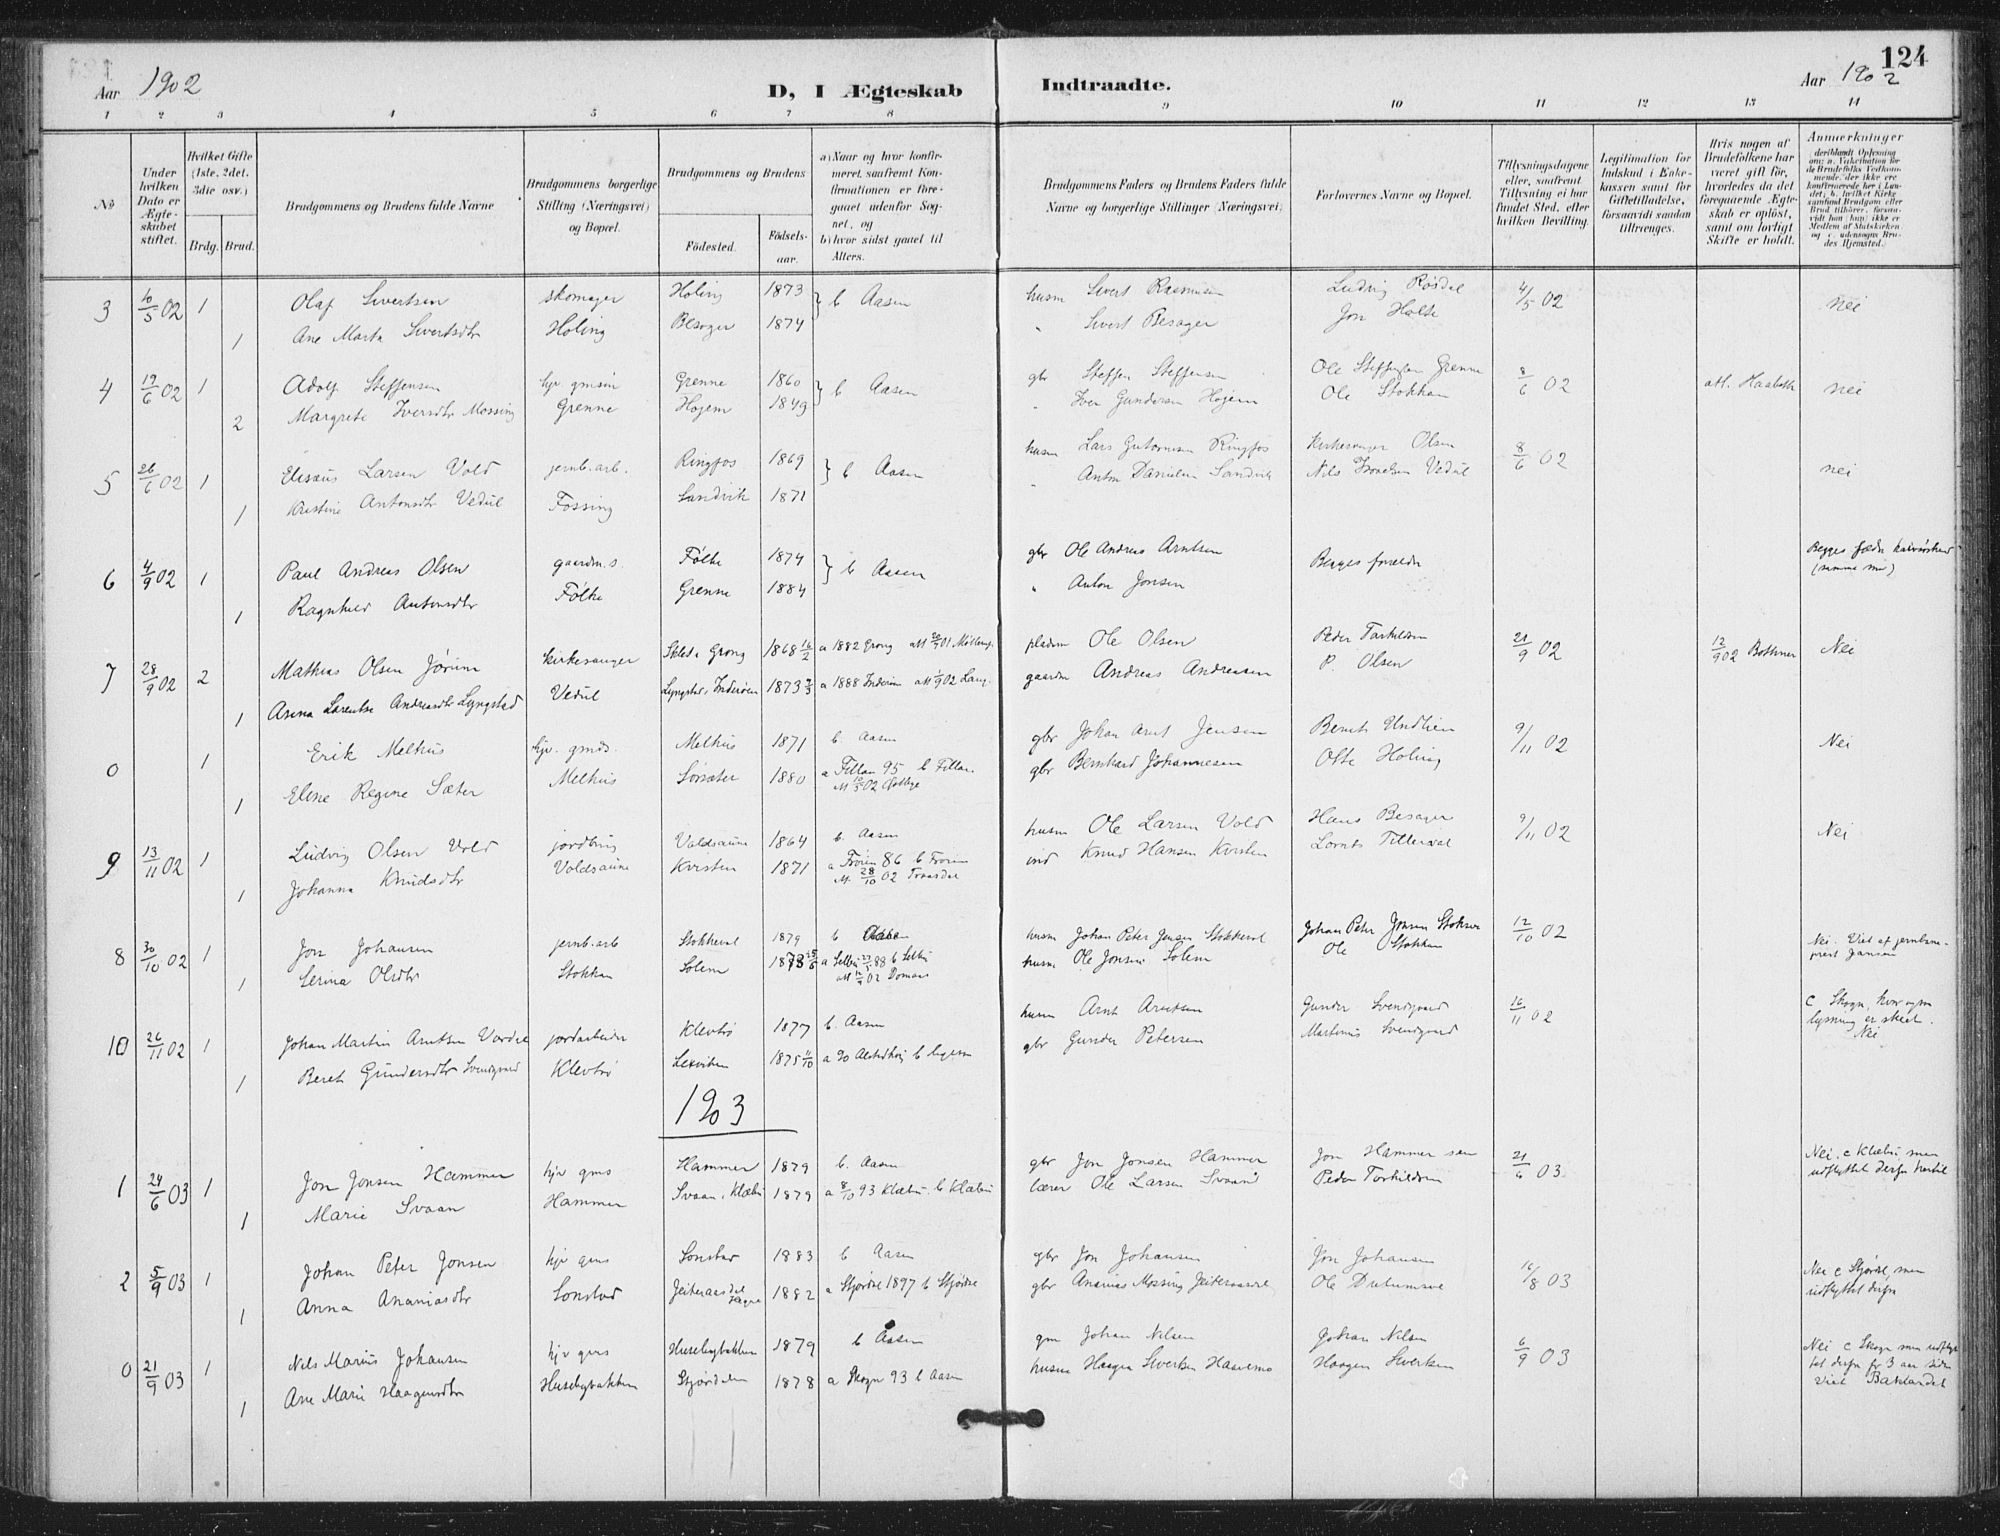 124
Aar 1902
D, I Ægteskab Indtraadte.
Aar 1902
1 2 3 4 5 6 7 8 9 10 11 12 13 14
No
Under hvilken Dato er Ægteskabet stiftet.
Hvilket Gifte (1ste, 2det, 3die osv.)
Brdg. Brud.
Brudgommens og Brudens fulde Navne
Brudgommens borgerlige Stilling (Næringsvei) og Bopæl.
Brudgommens og Brudens
Födested.
Födsels-aar.
a) Naar og hvor konfirmeret, samfremt Konfirmationen er foregaaet udenfor Sognet, og
b) hvor sidst gaaet til Alters.
Brudgommens Faders og Brudens Faders fulde Navne og borgerlige Stillinger (Næringsvei)
Forlovernes Navne og Bopæl.
Tillysningsdagene eller, saafremt Tillysning ei har fundet Sted, efter hvilken Bevilling.
Legitimation for Indskud i Enkekassen samt for Giftetilladelse, forsaavidt saadan tiltrænges.
Hvis nogen af Brudefolkene har været gift för, hvorledes da det foregaaende Ægteskab er oplöst, samt om lovligt Skifte er holdt.
Anmærkninger
3 10/5 02 1 Olaf Sivertsen skomager Holing 1873 } b Aasen husm Sivert Rasmusen Ludvig Røsdal 4/5 02 nei
1 Ane Marta Sivertsdtr Holing Besager 1874 " Sivert Besager Jon Holte
4 19/6 02 1 Adolf Steffensen hjv. gmsøn Grenne 1860 } b Aasen gbr Steffen Steffensen Ole Steffensen Grenne 8/6 02 nei
2 Margrete Iversdtr Mossing Grenne Hojem 1849 " Iver Gundersen Hojem Ole Stokkan
5 26/6 02 1 Elisæus Larsen Vold jernb. arb. Ringfos 1869 } b Aasen husm Lars Ringfos Kirkesanger Olsen 8/6 02 nei
1 Kristine Antonsdtr Vedul Fossing Sandvik 1871 " Anton Danielsen Sandvik Nils Vedul
6 4/9 02 1 Paul Andreas Olsen gaardm.s Følke 1874 } b Aasen gbr Ole Andreas Arntsen Begges forældre Begges fædre
1 Ragnhild Antonsdtr Følke Grenne 1884 " Anton Jonsen
7 28/9 02 2 Mathias Olsen Jørum Kirkesanger Grong 1868 16/2 a 1882 Grong pladsm Ole Olsen Peder Torkildsen 21/9 02 12/9 02 Bothner Nei
1 Anna Larentse Andreasdtr Lyngstad Vedul Lyngstad, Inderøen 1873 a 1888 Inderøen gaardm Andreas Andreasen P. Olsen
0 1 Erik Melhus hjv. gmds. Melhus 1871 b. Aasen gbr Johan Arnt Jensen Bernt Undlien 9/11 02 Nei
1 Elene Regine Sæter Melhus Sørsæter 1880 a Fillan 95 b Fillan gbr Bernhard Johannesen Otte Holing
9 13/11 02 1 Ludvig Olsen Vold jordbrug Voldsaune 1864 b. Aasen husm Ole Larsen Vold Hans Besager 9/11 02 Nei
1 Johanna Knudsdtr Voldsaune Kvisten 1871 a Frøien 86 b Frøien ind Knud Hansen Kvisten
28/10 02
8 30/10 02 1 Jon Johansen jernb. arb Stokkeval 1879 b Aasen husm Johan Peter Jensen Stokkeval Johan Peter Jensen 12/10 02 Nei. Viet af jernbaneprest Jansen
1 Serina Olsdtr Stokkan Solem 1878 a Selbu 88 b Selbu husm Ole Jonsen Solem Ole Stokkan
10 26/11 02 1 Johan Martin Arntsen jordarbeider Klevbrö 1877 b. Aasen husm Arnt Arntsen Gunder Svendgaard 16/11 02 c Skogn, hvor ogsaa lysning er skeet. Nei
1 Beret Gundersdtr Svendgaard Klevbrö Lexviken 1875 11/10 gbr Gunder Petersen Martinus Svendgaard
1903
1 24/6 03 1 Jon Jonsen Hammer hjv gms Hammer 1879 b. Aasen gbr Jon Jonsen Hammer Jon Hammer sen 21/6 03. Nei. c Klæbu men udflyttet derfra hertil
1 Marie Svaan Hammer Svaan, Klæbu 1879 a 8/10 93 Klæbu b Klæbu lærer Ole Larsen Svaan Peder Torkildsen
2 5/9 03 1 Johan Peter Jonsen hjv gms Lonstad 1883 b Aasen gbr Jon Johansen Jon Johansen 16/8 03 Nei c Stjørdal, men udflyttet derfra
1 Anna Ananiasdtr Lonstad 1882 a Stjørdal 1897 b Stjørdal gbr Ananias Mossing Ole
0 21/9 03 1 Nils Marius Johansen hjv gms Husebybakken 1879 b Aasen gm Johan Nilsen Johan Nilsen 6/9 03 Nei c Skogn men udflyttet derfra for 3 aar siden viet Baklandet
1 Ane Marie Haagensdtr Husebybakken Stjørdalen 1878 a Skogn 93 b Aasen husm Haagen Sivertsen Haavemo Haagen Sivertsen